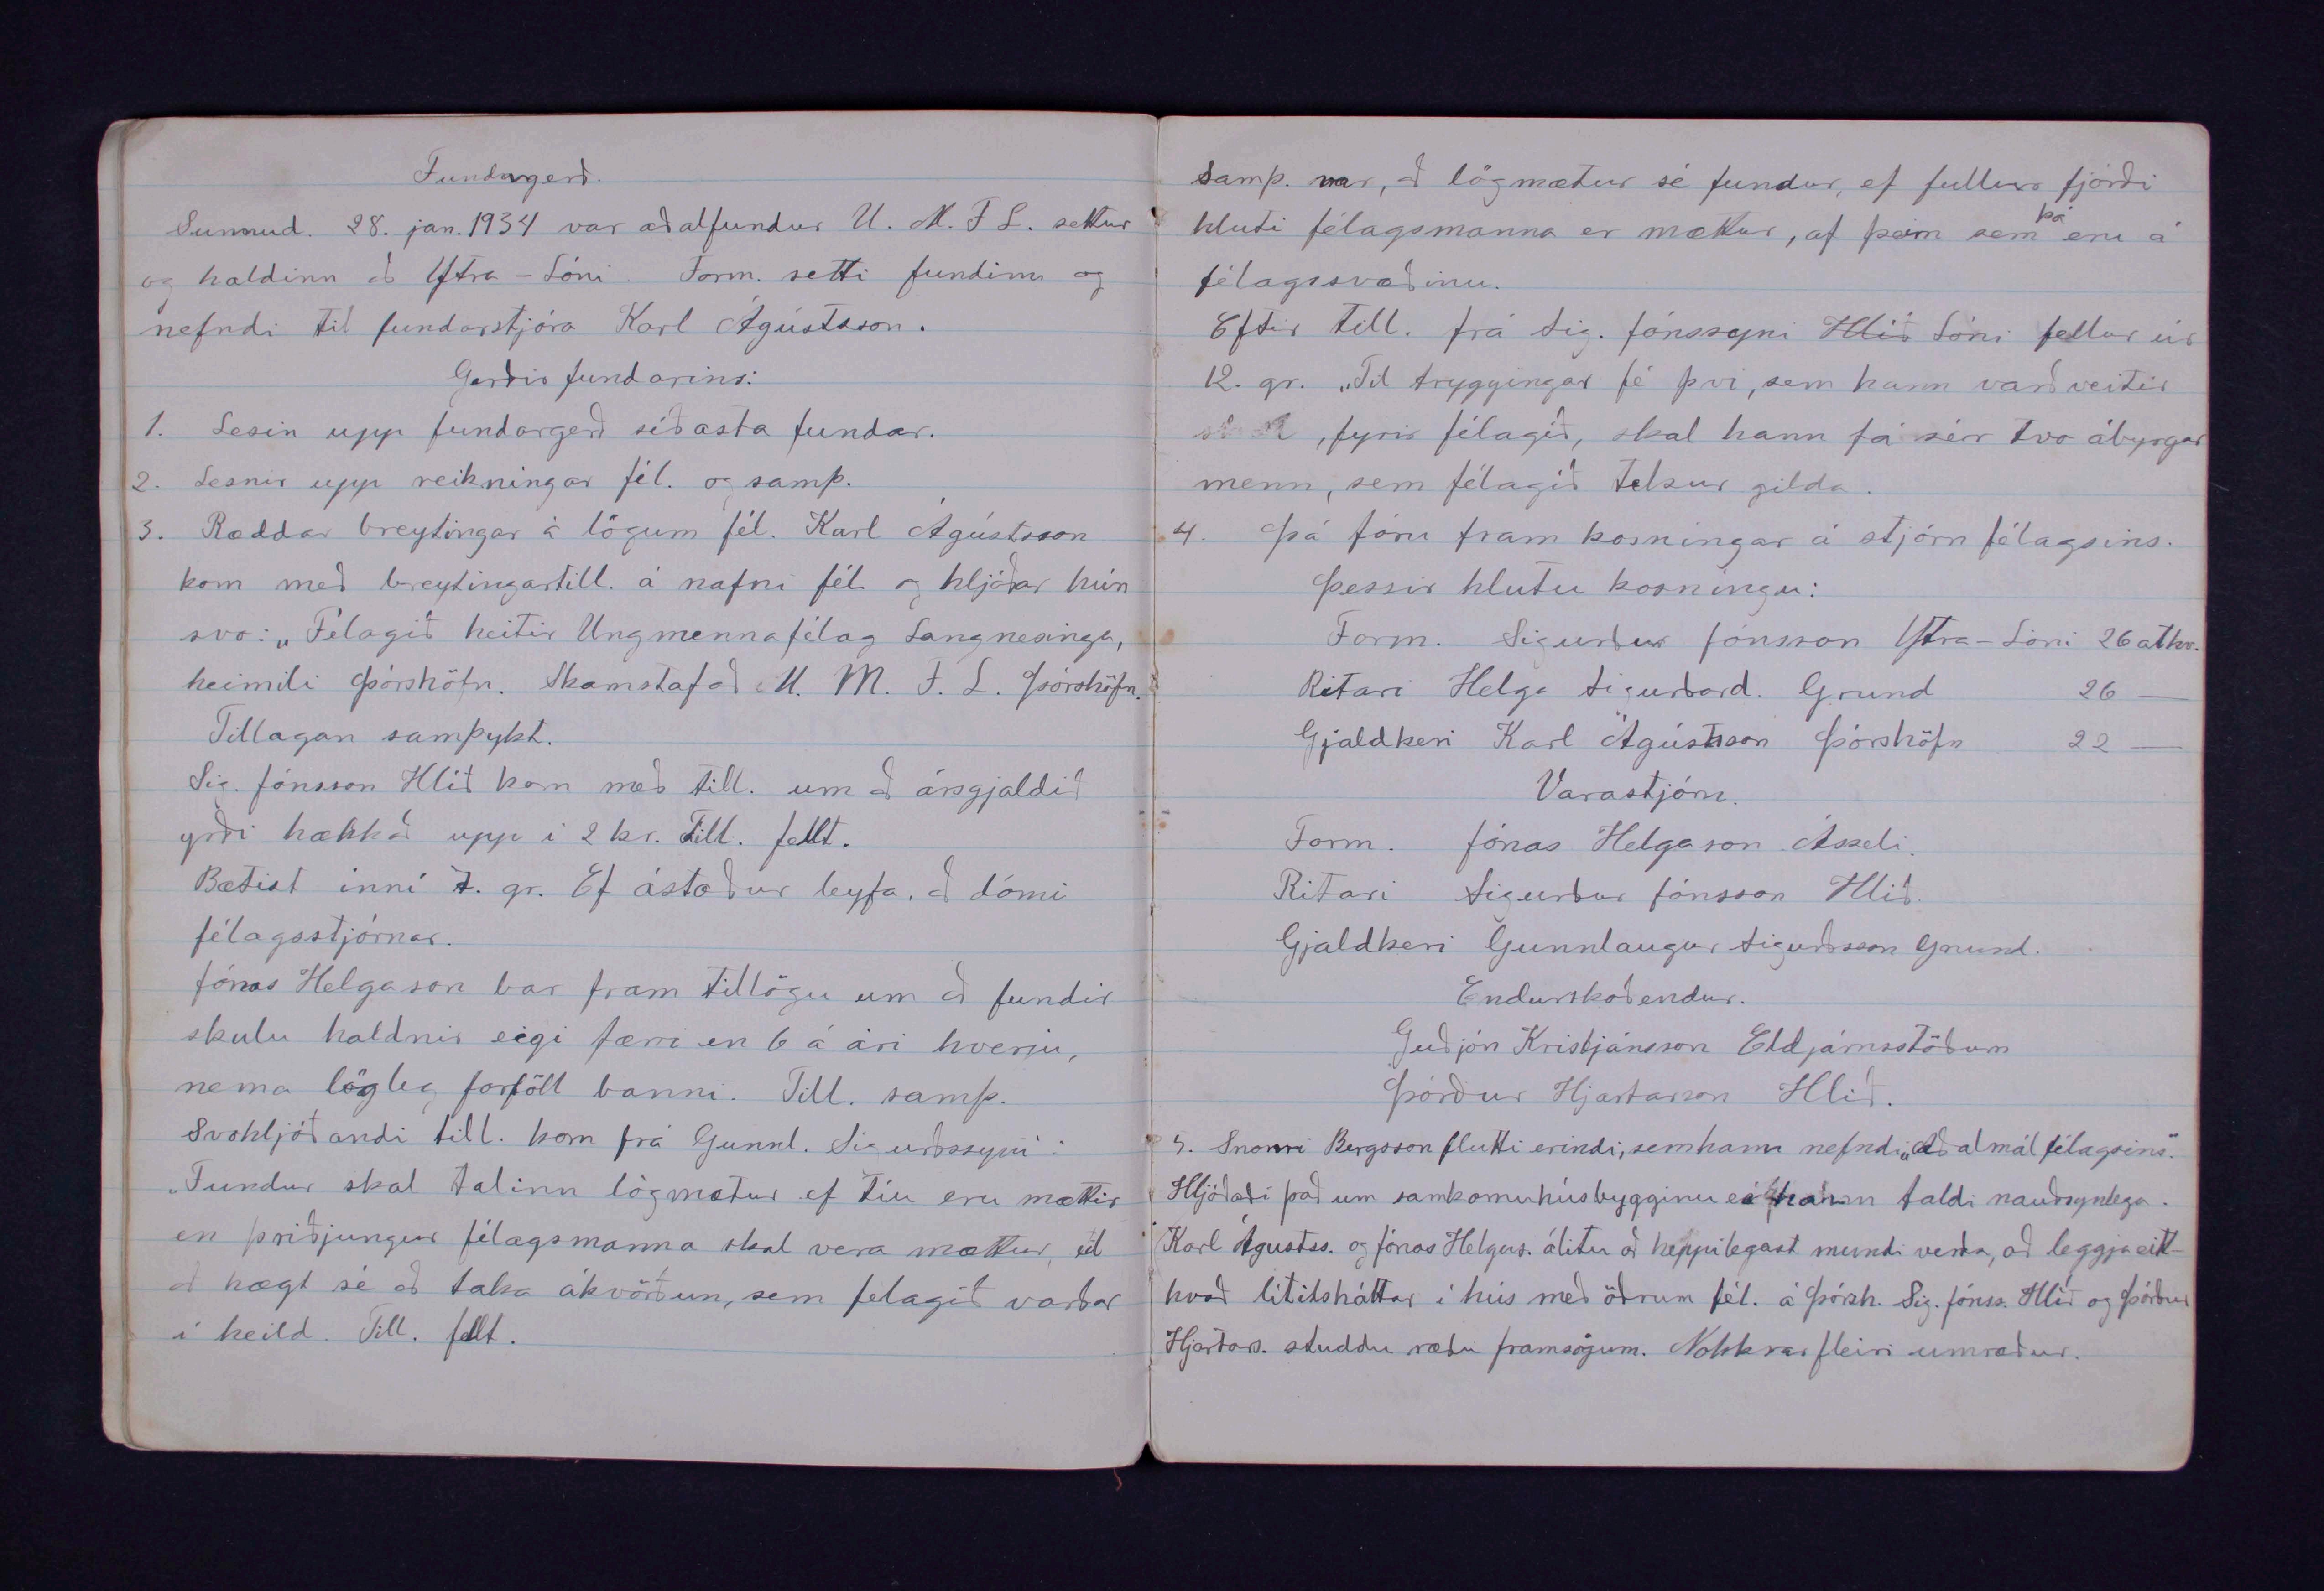 Fundargerð.
Sunnud. 28. jan. 1934 var aðalfundur U. M. F L. settur
og haldinn að Ytra-Lóni. Form. setti fundinn og
nefndi til fundarstjóra Karl Ágústsson.
Gerðir fundarins:
1. Lesin upp fundargerð síðasta fundar.
2. Lesnir upp reikningar fél. og samþ.
3. Ræddar breytingar á lögum fél. Karl Ágústsson
kom með breytingartill. á nafni fél og hljóðar hún
svo: „Félagið heitir Ungmennafélag Langnesinga,
heimili Þórshöfn. Skamstafað U. M. F. L. Þórshöfn.
Tillagan samþykt.
Sig. Jónsson Hlíð kom með till. um að ársgjaldið
yrði hækkað upp í 2 kr. Till. fellt.
Bætist inní 7. gr. Ef ástæður leyfa, að dómi
félagsstjórnar.
Jónas Helgason bar fram tillögu um að fundir
skulu haldnir eigi færri en 6 á ári hverju,
nema lögleg forföll banni. Till. samþ.
Svohljóðandi till. kom frá Gunnl. Sigurðssyni:
„Fundur skal talinn lögmætur ef tíu eru mættir
en þriðjungur félagsmanna skal vera mættur, til
að hægt sé að taka ákvörðun, sem felagið varðar
í heild. Till. fellt.
Samþ. var, að lögmætur sé fundur, ef fullur fjórði
hluti félagsmanna er mættur, af þeim sem þá eru á
félagssvæðinu.
Eftir till. frá Sig. Jónssyni Hlíð Lóni fellur úr
12. gr. „Til tryggingar fé því, sem hann varðveitir
, fyrir félagið, skal hann fá sér tvo ábyrgar
menn, sem félagið telsur gilda.
4. Þá fóru fram kosningar á stjórn félagsins.
Þessir hlutu kosningu:
Form. Sigurður Jónsson Ytra-Lóni 26 atkv.
Ritari Helga Sigurðard. Grund 26 —
Gjaldkeri Karl Ágústsson Þórshöfn 22 —
Varastjórn.
Form. Jónas Helgason Ásseli.
Ritari Sigurður Jónsson Hlíð.
Gjaldkeri Gunnlaugur Sigurðsson Grund.
Endurskoðendur.
Guðjón Kristjánsson Eldjárnsstöðum
Þórður Hjartarson Hlíð.
5. Snorri Bergsson flutti erindi, sem hann nefndi „Aðalmál félagsins.“
Hljóðaði það um samkomuhúsbygginu er hann taldi nauðsynlega.
Karl Ágústss. og Jónas Helgas. álitu að heppilegast mundi verða, að leggja eitt-
hvað lítilsháttar í hús með öðrum fél. á Þórsh. Sig. Jónss. Hlíð og Þórður
Hjartars. studdu ræðu framsögum. Nokkrar fleiri umræður.